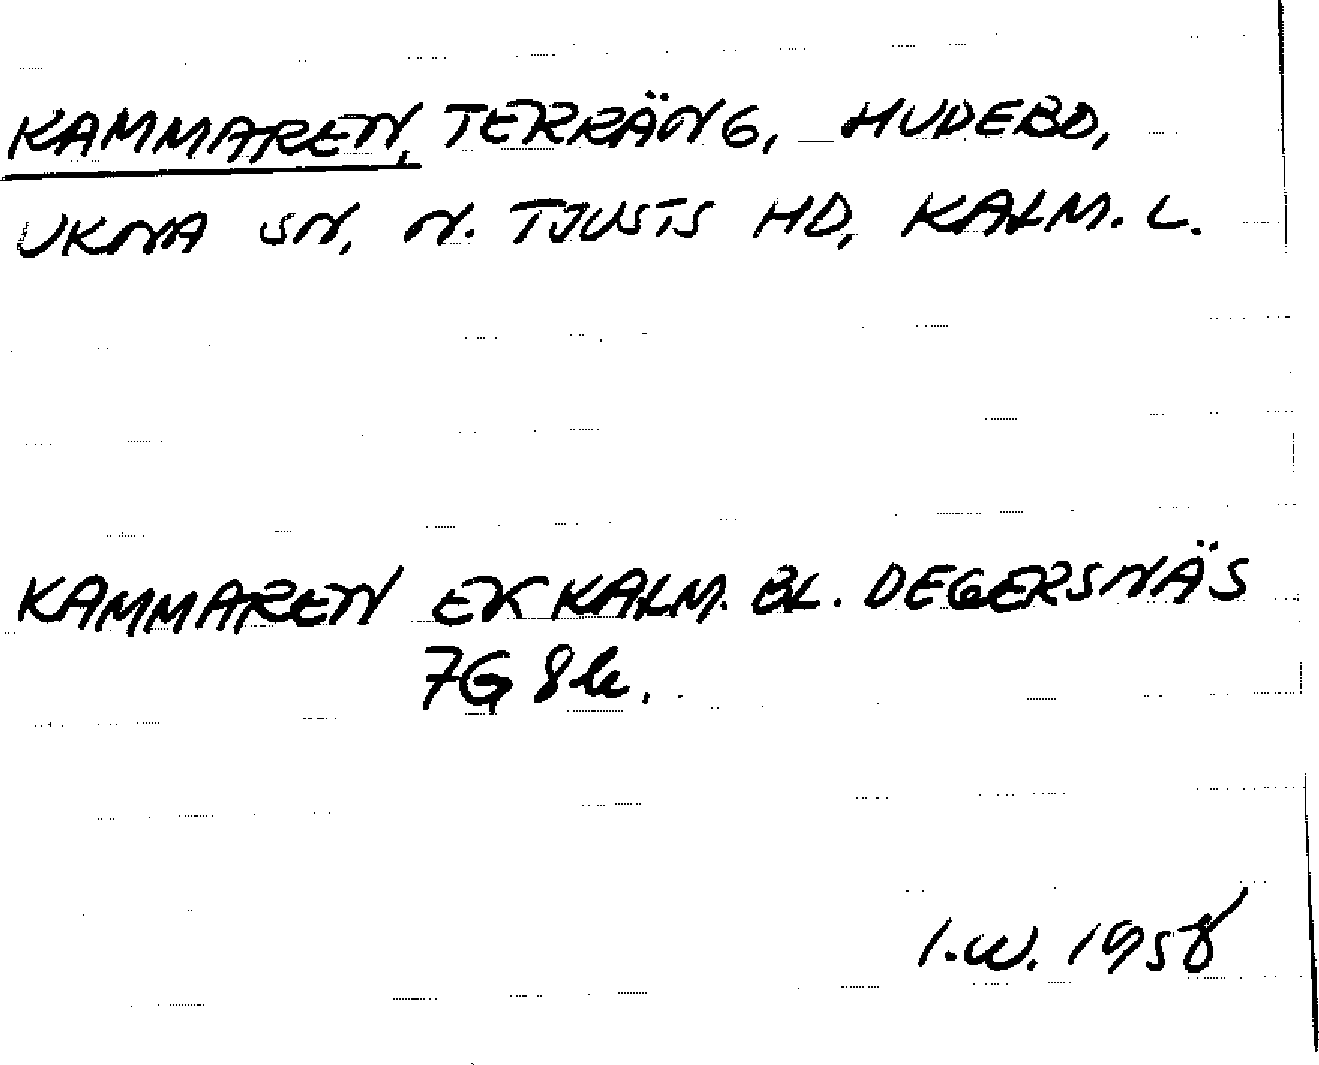 KAMMAREN, TERRÄNG, HUDEBO,
UKNA SN, N. TJUSTS HD, KALM. L.
KAMMAREN EK KALM. BL. DEGERSNÄS
7G 8b.
I.W. 1958